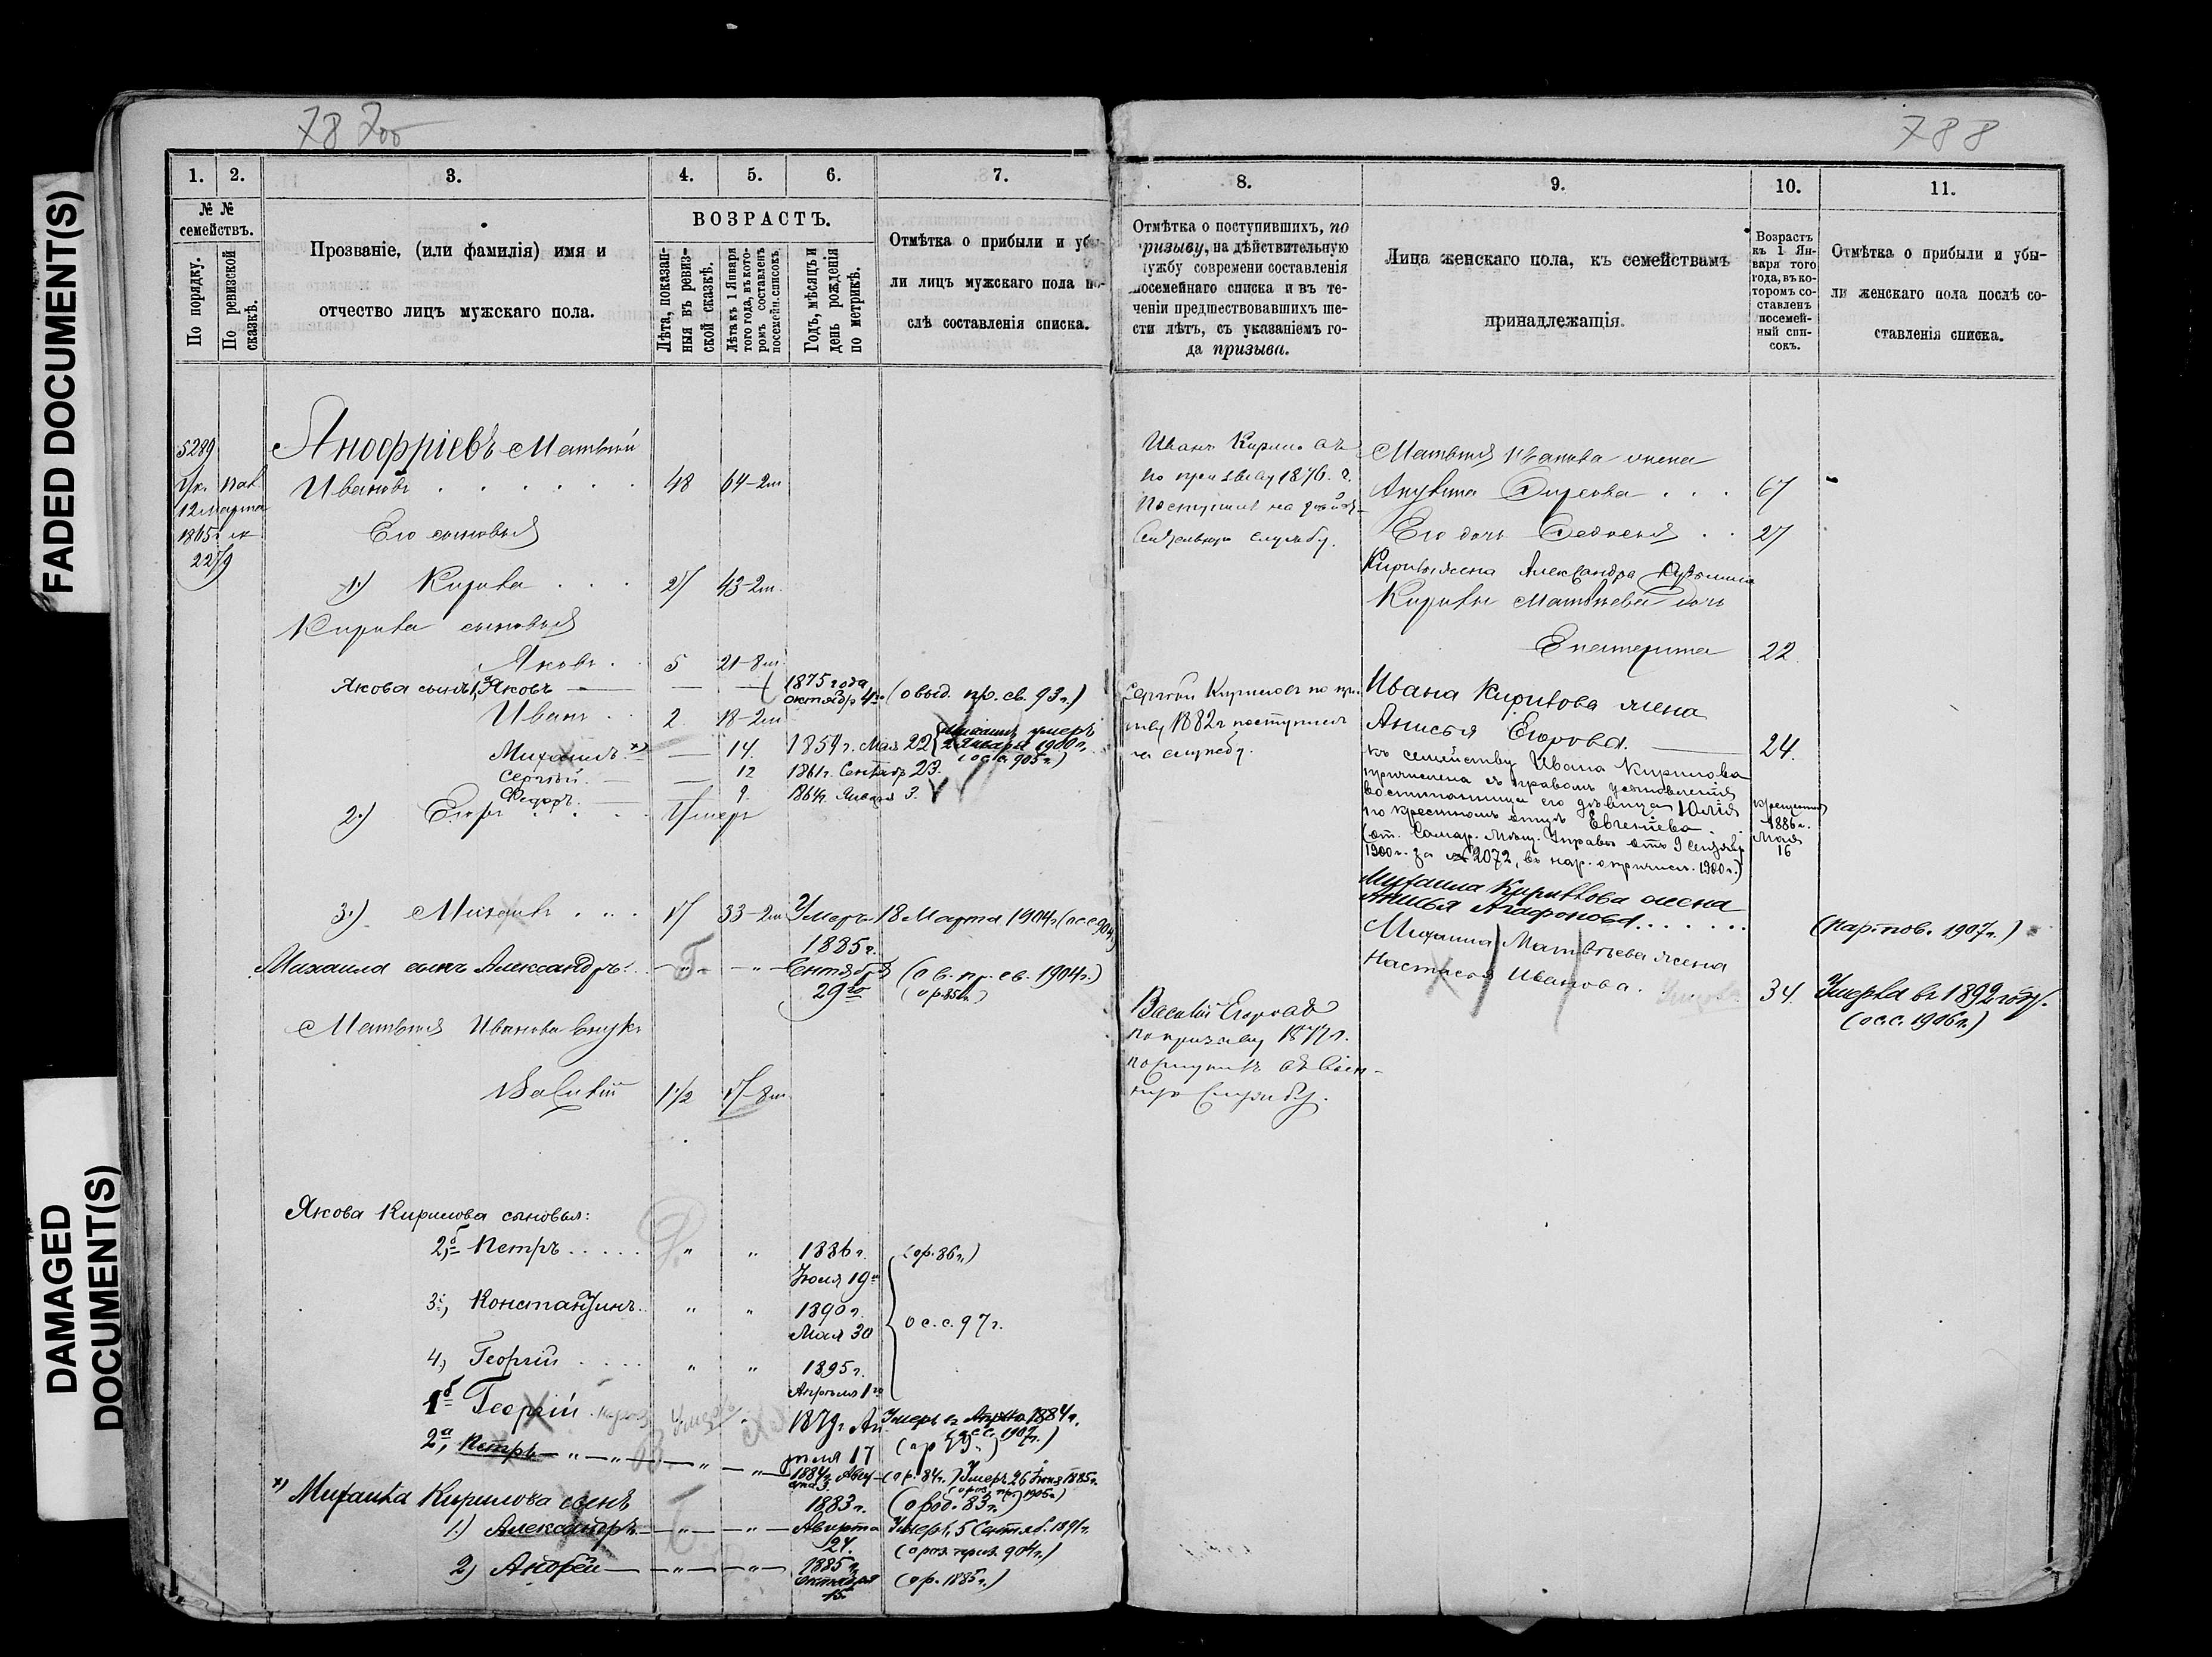 FADED DOCUMENT(S)
DAMAGED
DOCUMENT(S)
78
1. 2. 3. 4. 5. 6. 7.
№ №
семействъ.
По порядку.
По ревизской
сказкѣ.
Прозваніе, (или фамилія) имя и
отчество лицъ мужскаго пола.
ВОЗРАСТЪ.
Лѣта, показан-
ныя въ ревиз-
ской сказкѣ.
Лѣта къ 1 Января
того года, въ кото-
ромъ составленъ
посемейн. списокъ.
Годъ, мѣсяцъ и
день рожденія
по метрикѣ.
Отмѣтка о прибыли и убы-
ли лицъ мужскаго пола по-
слѣ составленія списка.
5289
12 Марта
1865
2279
Анофріевъ Матвѣй
Ивановъ . . . . . . 48 64-2м
Его сыновья
1.) Кирила . . . 27 43-2м.
Кирила сыновья
Яковъ . . 5 21-8м.
Якова сынъ 1, Яковъ — — — 1875 года
октябр 4го (о выд. пр. св. 93 г.)
Иванъ . . 2 18-2м
Михаилъ *) — 14. 1859 г. Мая 22 Михаилъ умеръ
2 Января 1900 г.
(о с.с. 905 г.)
Сергѣй. — — 12 1861 г. Сентябр 23.
Ѳедоръ. — 9. 1864 г. Января 3.
2.) Егоръ . . . Умеръ
3.) Михаилъ . . . 17 33-2м Умеръ 18 Марта 1904 г. (о с.с. 904)
Михаила сынъ Александръ. — „ — — „ — 1885 г.
Сентября
29го
(о в. пр. св. 1904 г.)
(о р. 85 г.)
Матвѣя Иванова внукъ
Василій 1 1/2 17-8м
Якова Кирилова сыновья:
2,б Петръ . . . . . „ „ 1886 г.
Іюля 19го
(о р. 86 г.)
3, Константинъ . . „ „ 1890 г.
Мая 30
о с. с. 97 г.
4, Георгій . . . . „ „ 1895 г.
Апрѣля 1го
1б Георгій . Умеръ 1879 г. Ап
рѣля 17
Умеръ въ 1884 г.
(о с.с. 1907 г.)
2а, Петръ — „ — „ — „ — — „ — 1884 г. Авгу
ста 3.
(о р. 84 г.) Умеръ 26 Іюня 1885 г.
*) Михаила Кирилова сынъ
1.) Александръ — „ — — „ — 1883 г.
Августа
24.
(о род. 83 г.)
Умеръ 5 Сентяб. 1891 г.
(о роз. приз. 904 г.)
2) Андрей — — „ — — „ — 1885 г.
октября
15.
(о р. 1885 г.)
788
8. 9. 10. 11.
Отмѣтка о поступившихъ, по
призыву, на дѣйствительную
службу современи составленія
посемейнаго списка и въ те-
ченіи предшествовавшихъ ше-
сти лѣтъ, съ указаніемъ го-
да призыва.
Лица женскаго пола, къ семействамъ
принадлежащія
Возрастъ
къ 1 Ян-
варя того
года, въ ко-
торомъ со-
ставленъ
посемей-
ный спи-
сокъ.
Отмѣтка о прибыли и убы-
ли женскаго пола послѣ со-
ставленія списка.
Иванъ Кириловъ
по призыву 1876 г.
Поступилъ на дѣй-
ствительную службу.
Матвѣя Иванова жена
Акулина . . . 67
Его дочь Ѳедосья . . 27
Кирилы жена Александра Кузьмина
Кирилы Матвѣева дочь
Екатерина 22.
Сергѣй Кириловъ по при-
зыву 1882 г. поступилъ
на службу.
Ивана Кирилова жена
Анисья Егорова. — 24.
къ семейству Ивана Кирилова
причислена съ правомъ усыновленія
воспитанница его дѣвица Юлія
по крестномъ отцѣ Евгеніева.
(от. Самар. Мѣщ. Управы отъ 9 Сентябр
1900 г. за № 2072, въ нар. о причисл. 1900 г.)
1886 г.
Мая
16
Михаила Кирилова жена
Анисья Агафонова . . . . . .
(пар. пов. 1907 г.)
Михаила Матвѣева жена
Настасья Иванова. 34. Умерла въ 1892 году.
(о с.с. 1906 г.)
Василій Егоровъ
по призыву 1877 г.
поступилъ въ воен-
ную службу.